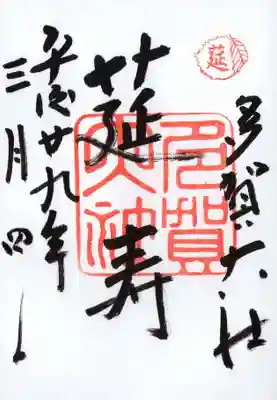 莚
多賀大社
莚寿
多賀
大神
平成廿九年
三月四日